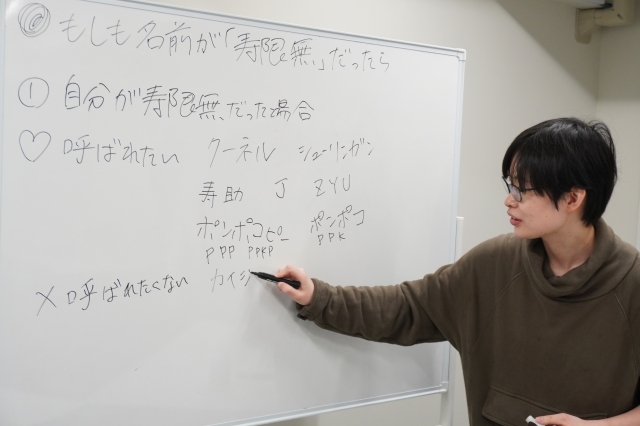 ◎ もしも名前が「寿限無」だったら
① 自分が寿限無だった場合
♡ 呼ばれたい クーネル シューリンガン
寿助 J ZYU
ポンポコピー ポンポコ
PPP PPKP PPK
× 呼ばれたくない カイジ